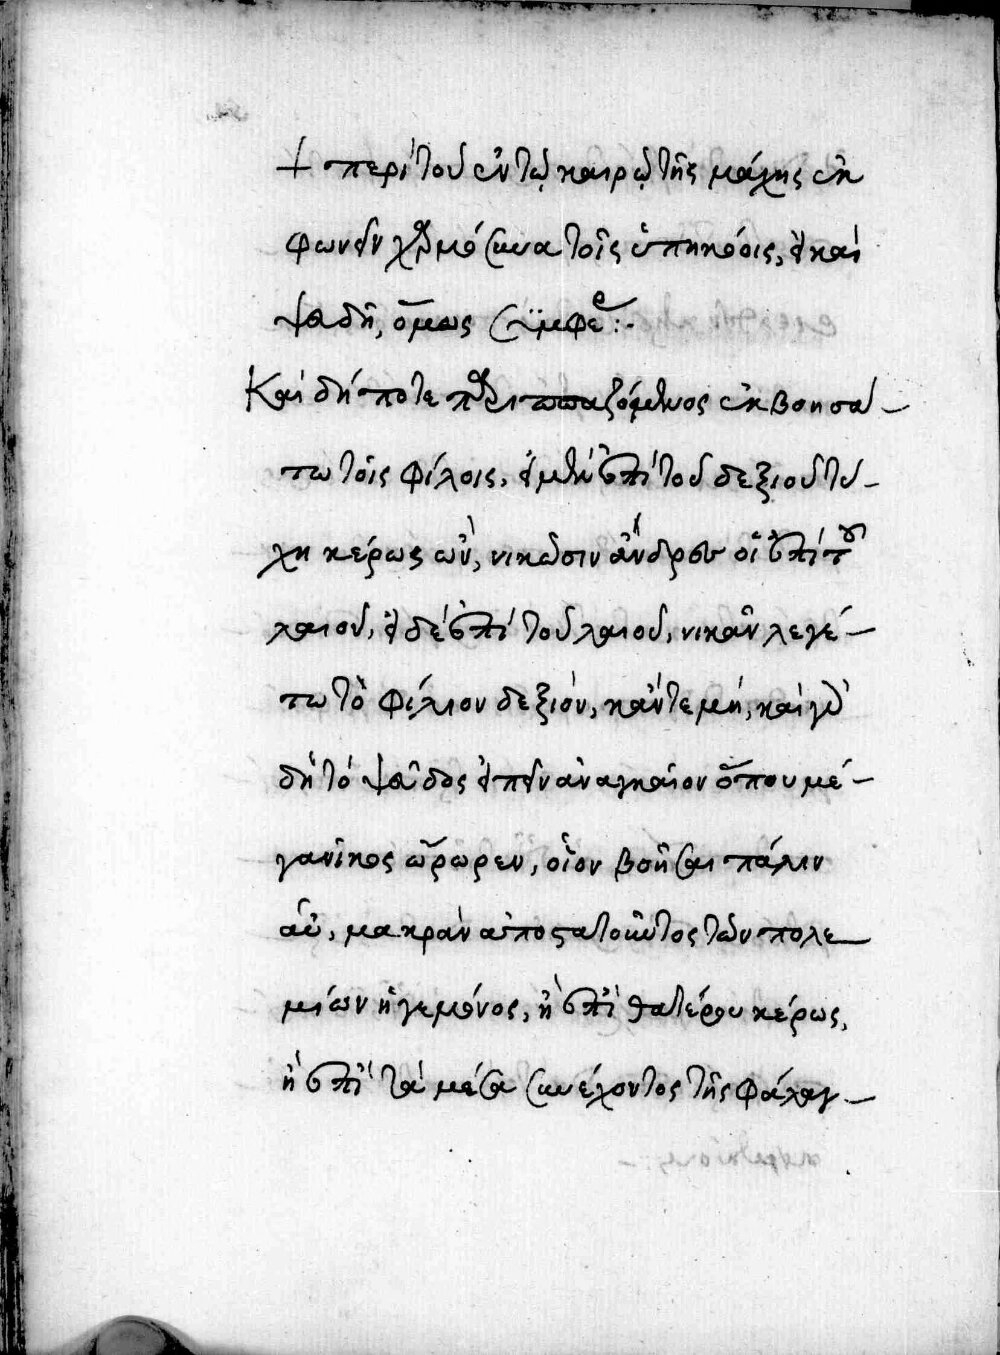 + περὶ τοῦ ἐν τῷ καιρῷ τῆς μάχης ἐκ
φωνεῖν χαρμόσυνα τοῖς ὑπηκόοις, εἰ καὶ
ψευδῆ, ὅμως συμφέρει:-
Καὶ δή ποτε παριππαζόμενος ἐκβοησά-
τω τοῖς φίλοις, εἰ μὲν ἐπὶ τοῦ δεξιοῦ τύ-
χῃ κέρως ὢν, νικῶσιν ἄνδρες οἱ ἐπὶ τοῦ
λαιοῦ, εἰ δὲ ἐπὶ τοῦ λαιοῦ, νικᾶν λεγέ-
τω τὸ φίλιον δεξιόν, κἄν τε μὴ, καὶ γὰρ
δὴ τὸ ψεῦδος εἰπεῖν ἀναγκαῖον ὅπου μέ-
γα νῖκος ὤρωρεν, οἷον βοῆσαι πάλιν
αὖ, μακρὰν ἀποστατοῦντος τῶν πολε
μίων ἡγεμόνος, ἢ ἐπὶ θατέρου κέρως,
ἢ ἐπὶ τὰ μέσα συνέχοντος τῆς φάλαγ-